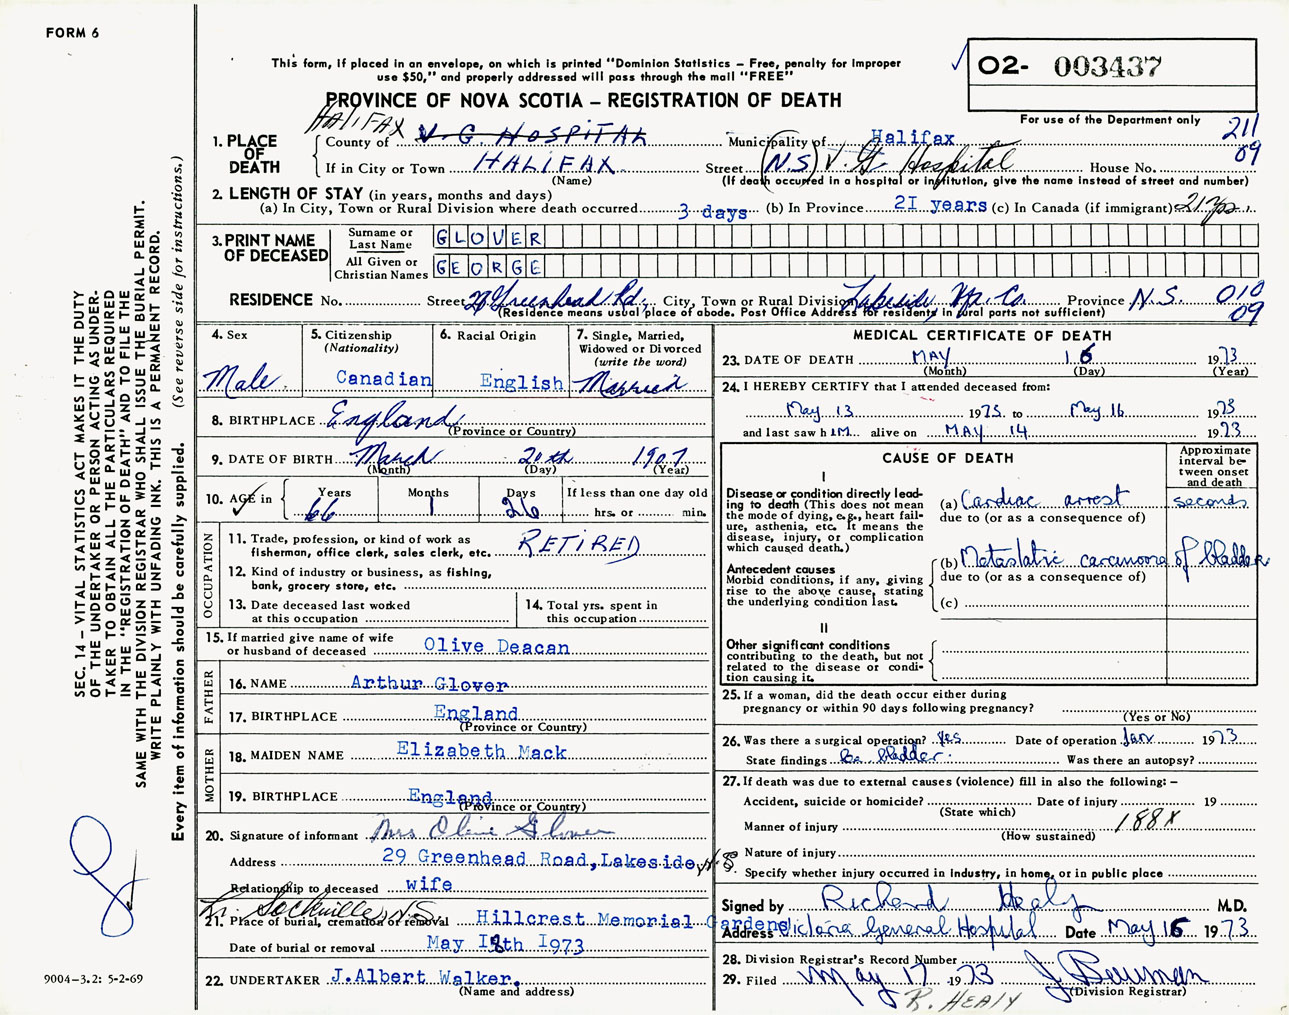 FORM 6
This form, if placed in an envelope, on which is printed "Dominion Statistics – Free, penalty for improper
use $50," and properly addressed will pass through the mail "FREE"
O2- 003437
For use of the Department only
211
09
PROVINCE OF NOVA SCOTIA – REGISTRATION OF DEATH
1. PLACE OF DEATH
HALIFAX
County of V. G. HOSPITAL Municipality of Halifax
If in City or Town HALIFAX Street (N.S) V. G. Hospital House No.
(Name) (If death occurred in a hospital or institution, give the name instead of street and number)
2. LENGTH OF STAY (in years, months and days)
(a) In City, Town or Rural Division where death occurred 3 days (b) In Province 21 years (c) In Canada (if immigrant) 21 yrs
3. PRINT NAME OF DECEASED
Surname or Last Name GLOVER
All Given or Christian Names GEORGE
RESIDENCE No. Street 29 Greenhead Rd. City, Town or Rural Division Lakeside Hx. Co. Province N.S. 010
09
(Residence means usual place of abode. Post Office Address for residents in rural parts not sufficient)
4. Sex
Male
5. Citizenship
(Nationality)
Canadian
6. Racial Origin
English
7. Single, Married,
Widowed or Divorced
(write the word)
Married
8. BIRTHPLACE England
(Province or Country)
9. DATE OF BIRTH March 20th 1907
(Month) (Day) (Year)
10. AGE in
Years Months Days If less than one day old
66 1 26 hrs. or min.
OCCUPATION
11. Trade, profession, or kind of work as
fisherman, office clerk, sales clerk, etc. RETIRED
12. Kind of industry or business, as fishing,
bank, grocery store, etc.
13. Date deceased last worked
at this occupation
14. Total yrs. spent in
this occupation
15. If married give name of wife
or husband of deceased Olive Deacan
FATHER
16. NAME Arthur Glover
17. BIRTHPLACE England
(Province or Country)
MOTHER
18. MAIDEN NAME Elizabeth Mack
19. BIRTHPLACE England
(Province or Country)
20. Signature of informant Mrs Olive Glover
Address 29 Greenhead Road, Lakeside, N.S.
Relationship to deceased wife
Sackville N.S.
21. Place of burial, cremation or removal Hillcrest Memorial Gardens
Date of burial or removal May 18th 1973
22. UNDERTAKER J.Albert Walker.
(Name and address)
MEDICAL CERTIFICATE OF DEATH
23. DATE OF DEATH MAY 16 1973
(Month) (Day) (Year)
24. I HEREBY CERTIFY that I attended deceased from:
May 13 1973 to May 16 1973
and last saw h IM alive on MAY 14 1973
CAUSE OF DEATH
Approximate
interval be-
tween onset
and death
I
Disease or condition directly lead-
ing to death (This does not mean
the mode of dying, e.g., heart fail-
ure, asthenia, etc. It means the
disease, injury, or complication
which caused death.)
(a) Cardiac arrest seconds
due to (or as a consequence of)
Antecedent causes
Morbid conditions, if any, giving
rise to the above cause, stating
the underlying condition last.
(b) Metastatic carcinoma of bladder
due to (or as a consequence of)
(c)
II
Other significant conditions
contributing to the death, but not
related to the disease or condi-
tion causing it.
25. If a woman, did the death occur either during
pregnancy or within 90 days following pregnancy?
(Yes or No)
26. Was there a surgical operation? Yes Date of operation Jan 1973
State findings Ca bladder. Was there an autopsy?
27. If death was due to external causes (violence) fill in also the following: –
Accident, suicide or homicide? Date of injury 19
(State which)
Manner of injury 188X
(How sustained)
Nature of injury
Specify whether injury occurred in industry, in home, or in public place
Signed by Richard Healy M.D.
Address Victoria General Hospital Date May 16 1973
28. Division Registrar's Record Number
29. Filed May 17 1973 J Bowman
(Division Registrar)
R. HEALY
SEC. 14 – VITAL STATISTICS ACT MAKES IT THE DUTY
OF THE UNDERTAKER OR PERSON ACTING AS UNDER-
TAKER TO OBTAIN ALL THE PARTICULARS REQUIRED
IN THE "REGISTRATION OF DEATH" AND TO FILE THE
SAME WITH THE DIVISION REGISTRAR WHO SHALL ISSUE THE BURIAL PERMIT.
WRITE PLAINLY WITH UNFADING INK. THIS IS A PERMANENT RECORD.
Every item of information should be carefully supplied. (See reverse side for instructions.)
9004-3.2: 5-2-69